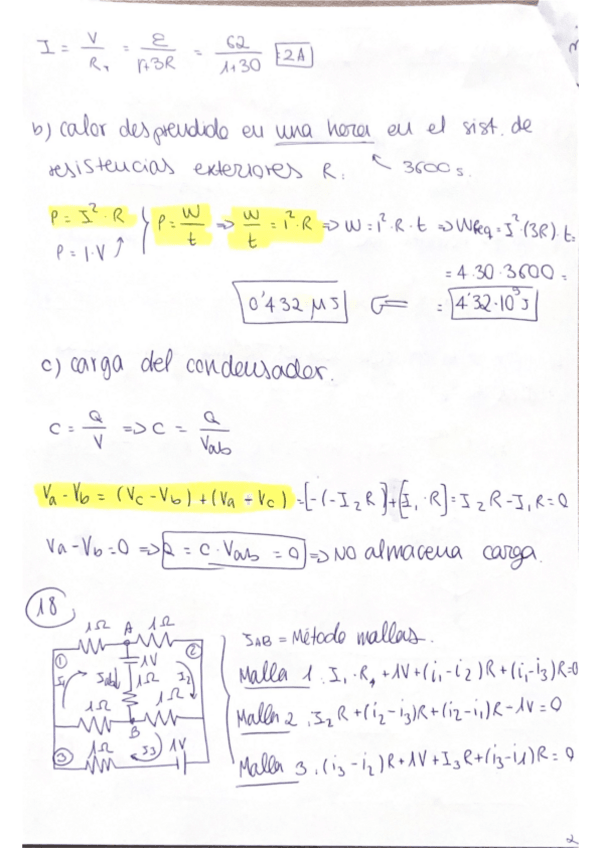 I = V/R₁ = ε/r+3R = 62/1+30 = 2A
b) calor desprendido en una hora en el sist. de
resistencias exteriores R. ↖ 3600 s.
P = I²·R } P = W/t => W/t = i²·R => W = i²·R·t => WReq = I²·(3R)·t =
P = I·V ↗
= 4·30·3600 =
0'432 MJ <= = 4'32·10⁵J
c) carga del condensador.
C = Q/V => C = Q/Vab
Va - Vb = (Vc - Vb) + (Va + Vc) = [-(-I₂R] + [I₁·R] = I₂R - I₁R = 0
Va - Vb = 0 => Q = C·Vab = 0 => NO almacena carga.
18
1Ω A 1Ω
1 1V 2
I₁ IAB 1Ω I₂
1Ω 1Ω
B
3 1Ω I₃ 1V
IAB = Método mallas.
Malla 1. I₁·R + 1V + (i₁-i₂)R + (i₁-i₃)R = 0
Malla 2. I₂R + (i₂-i₃)R + (i₂-i₁)R - 1V = 0
Malla 3. (i₃-i₂)R + 1V + I₃R + (i₃-i1)R = 0
2